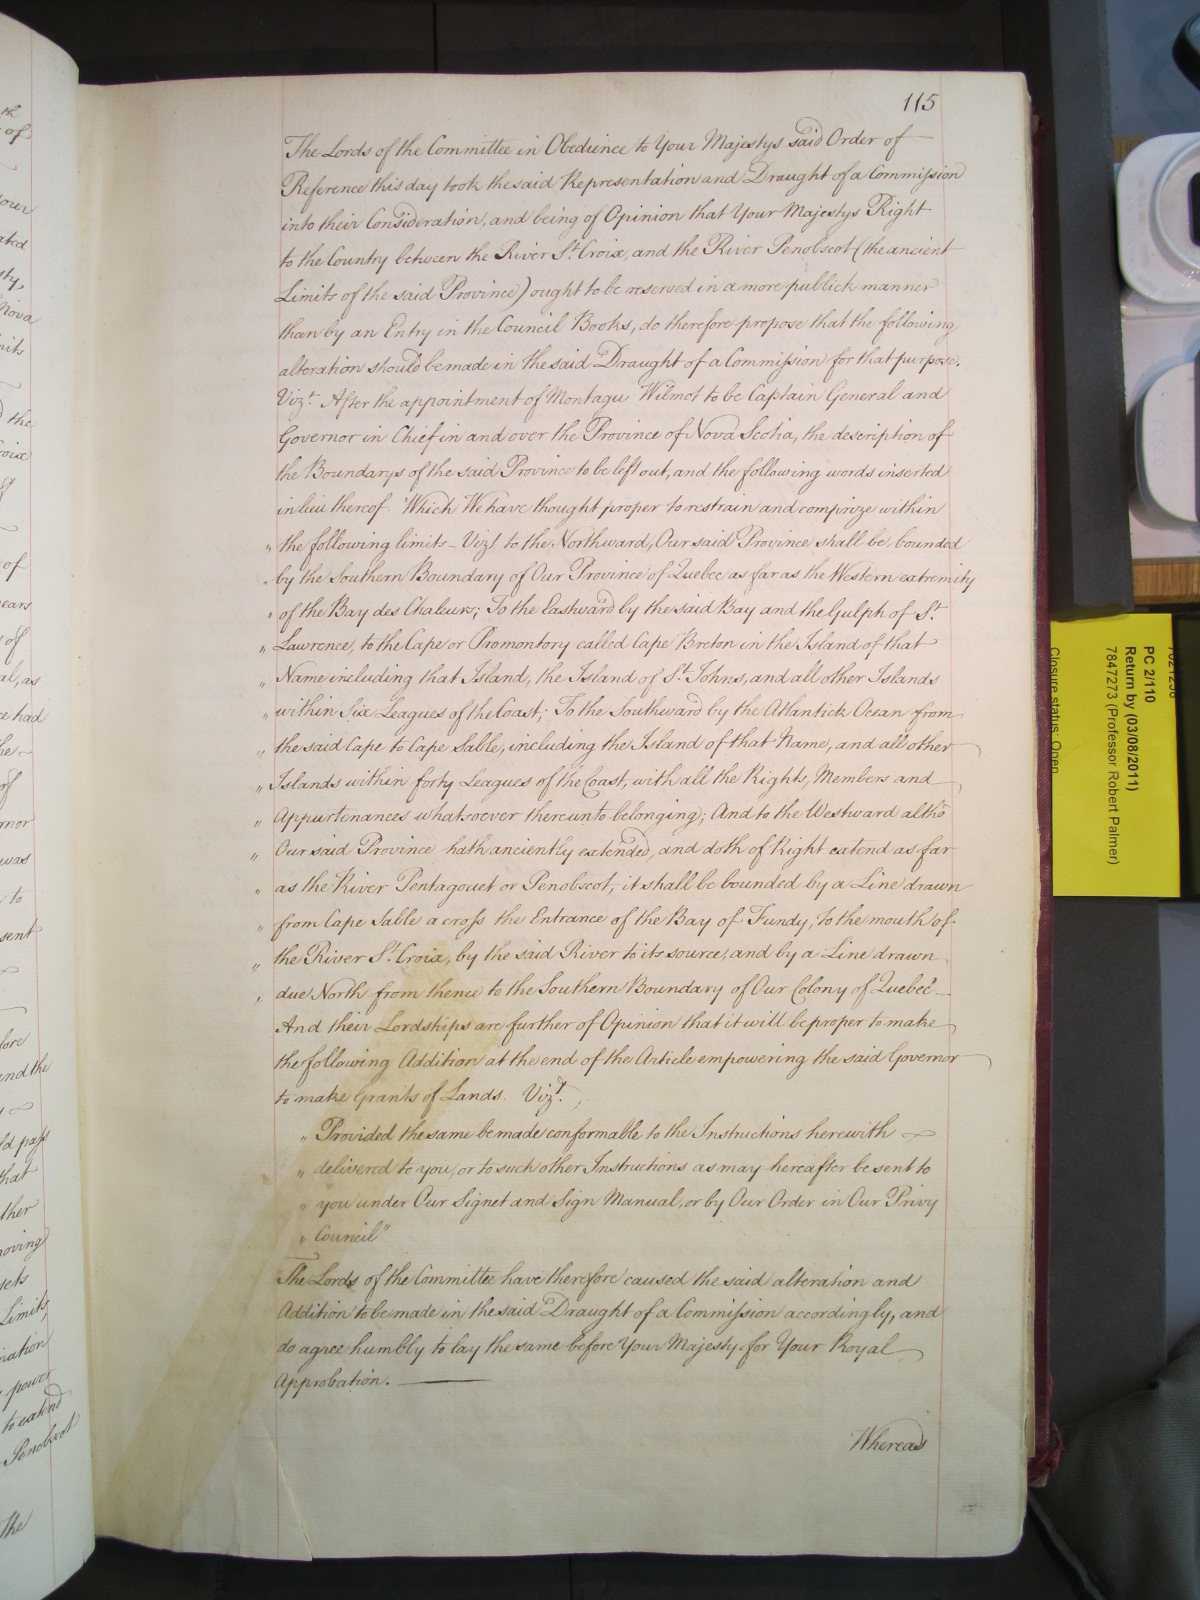 115
The Lords of the Committee in Obedience to Your Majestys said Order of
Reference this day took the said Representation and Draught of a Commission
into their Consideration, and being of Opinion that Your Majestys Right
to the Country between the River St. Croix, and the River Penobscot (the ancient
Limits of the said Province) ought to be reserved in a more publick manner
than by an Entry in the Council Books, do therefore propose that the following
alteration should be made in the said Draught of a Commission for that purpose.
Vizt. After the appointment of Montagu Wilmot to be Captain General and
Governor in Chief in and over the Province of Nova Scotia, the description of
the Boundarys of the said Province to be left out, and the following words inserted
in lieu thereof. "Which We have thought proper to restrain and comprize within
„ the following limits - Vizt. to the Northward, Our said Province shall be bounded
„ by the Southern Boundary of Our Province of Quebec as far as the Western extremity
„ of the Bay des Chaleurs; To the Eastward by the said Bay and the Gulph of St.
„ Lawrence, to the Cape or Promontory called Cape Breton in the Island of that
„ Name including that Island, the Island of St. Johns, and all other Islands
„ within Six Leagues of the Coast; To the Southward by the Atlantick Ocean from
„ the said Cape to Cape Sable, including the Island of that Name, and all other
„ Islands within forty Leagues of the Coast, with all the Rights, Members and
„ Appurtenances whatsoever thereunto belonging; And to the Westward altho'
„ Our said Province hath anciently extended, and doth of Right extend as far
„ as the River Pentagouet or Penobscot, it shall be bounded by a Line drawn
„ from Cape Sable across the Entrance of the Bay of Fundy, to the mouth of
„ the River St. Croix, by the said River to its source, and by a Line drawn
„ due North from thence to the Southern Boundary of Our Colony of Quebec"
And their Lordships are further of Opinion that it will be proper to make
the following Addition at the end of the Article empowering the said Governor
to make Grants of Lands. Vizt.
„ Provided the same be made conformable to the Instructions herewith
„ delivered to you, or to such other Instructions as may hereafter be sent to
„ you under Our Signet and Sign Manual, or by Our Order in Our Privy
„ Council"
The Lords of the Committee have therefore caused the said alteration and
Addition to be made in the said Draught of a Commission accordingly, and
do agree humbly to lay the same before Your Majesty for Your Royal
Approbation.
Whereas
PC 2/110
Return by (03/08/2011)
7847273 (Professor Robert Palmer)
Closure status: Open